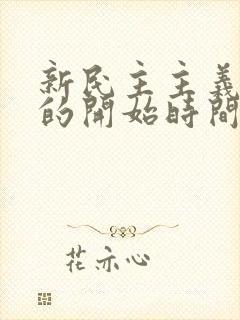 新民主主義
的開始時間
花亦心